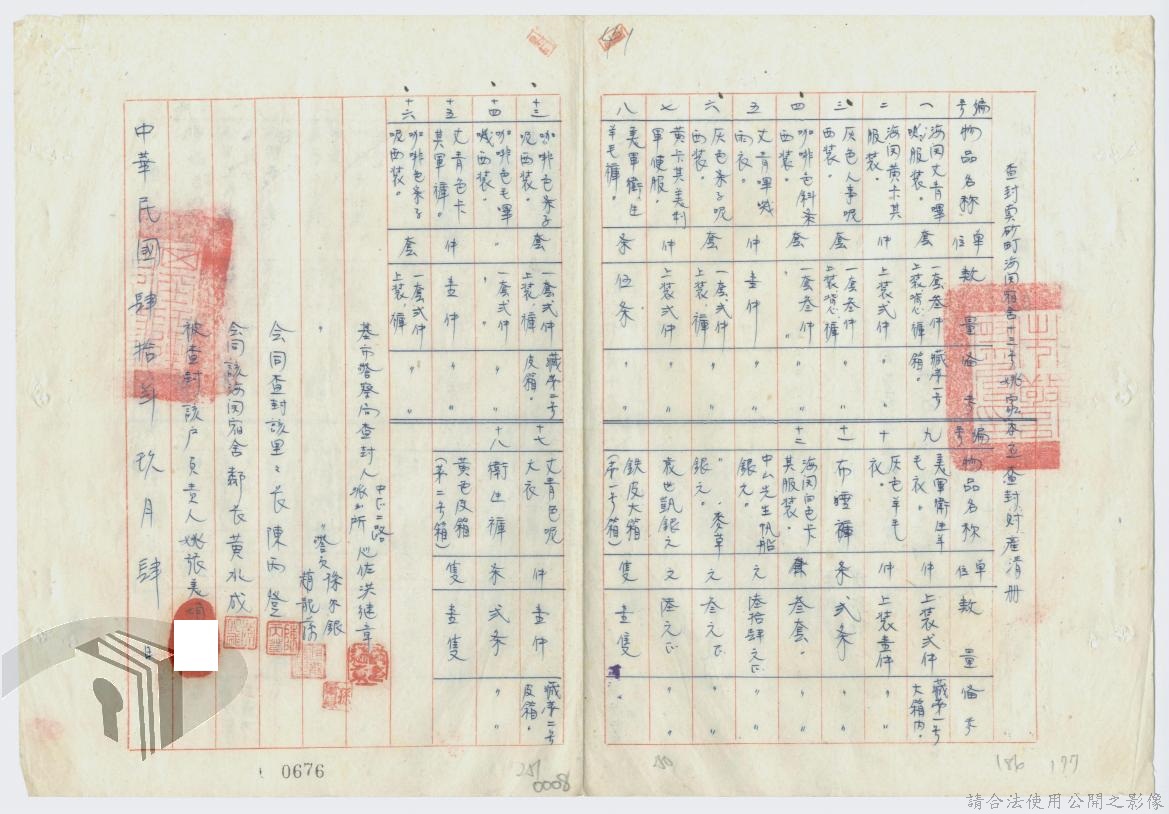 查封真砂町海関宿舍十三号姚家存立查封財產清冊
編号 物品名称 単位 数量 备考
一 海関丈青嗶嘰服装。 套 一套叁件上装背心褲 藏第一号箱。
二 海関黄卡其服装。 件 上装弍件 〃 〃
三 灰色人事呢西装。 套 一套叁件上装背心褲 〃 〃
四 咖啡色斜条西装。 套 〃 一套叁件 〃 〃
五 丈青嗶嘰雨衣。 件 壹件 〃 〃
六 灰色条子呢西装。 套 一套弍件上装、褲 〃 〃
七 黄卡其美利軍便服。 件 上装弍件 〃 〃
八 美軍衛生羊毛褲。 条 伍条 〃 〃
編号 物品名称 単位 数量 备考
九 美軍衛生羊毛衣。 件 上装弍件 藏第一号大箱内。
十 灰色羊毛衣。 件 上装壹件 〃 〃
十一 布睡褲 条 弍条 〃 〃
十二 海関白色卡其服装。 套 叁套。 〃 〃
中山先生帆船銀元。 元 陸拾肆元正 〃 〃
〃 麥草銀元。 元 叁元正 〃 〃
袁世凱銀元 元 陸元正 〃 〃
鉄皮大箱(第一号箱) 隻 壹隻
十三 咖啡色条子呢西装。 套 一套弍件上装、褲 藏第二号皮箱。
十四 咖啡色毛嗶嘰西装。 〃 〃 一套弍件 〃 〃
十五 丈青色卡其軍褲。 件 壹件 〃 〃
十六 咖啡色条子呢西装。 套 一套弍件上装、褲 〃 〃
十七 丈青色呢大衣 件 壹件 藏第二号皮箱。
十八 衛生褲 条 弍条 〃 〃
黄色皮箱(第二号箱) 隻 壹隻
基市警察局查封人中正二路派出所 巡佐洪継章
〃 〃警員 徐尔銀
趙龍
会同查封該里里長陳丙登
会同該海関宿舍鄰長黄水成
被查封該户負責人姚張美
中華民國肆拾年玖月肆日
0676
251
0008
250
186
177
請合法使用公開之影像